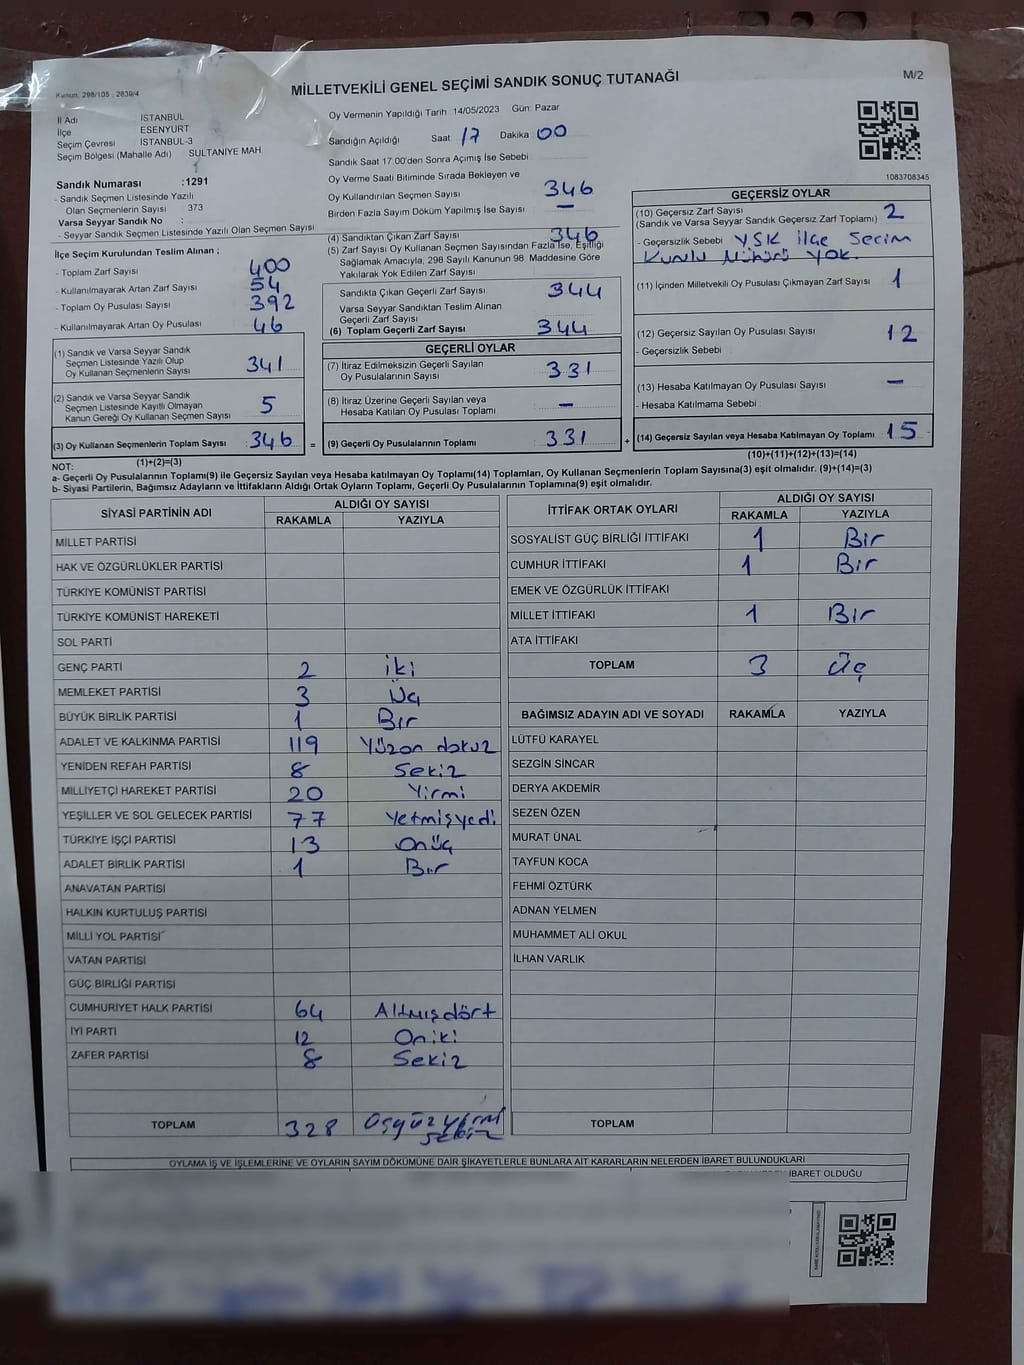 Kanun: 298/105 : 2839/4
MİLLETVEKİLİ GENEL SEÇİMİ SANDIK SONUÇ TUTANAĞI
M/2
İl Adı İSTANBUL
İlçe ESENYURT
Seçim Çevresi İSTANBUL-3
Seçim Bölgesi (Mahalle Adı) SULTANİYE MAH.
Sandık Numarası :1291
- Sandık Seçmen Listesinde Yazılı
Olan Seçmenlerin Sayısı 373
Varsa Seyyar Sandık No :
- Seyyar Sandık Seçmen Listesinde Yazılı Olan Seçmen Sayısı
İlçe Seçim Kurulundan Teslim Alınan ;
- Toplam Zarf Sayısı 400
- Kullanılmayarak Artan Zarf Sayısı 54
- Toplam Oy Pusulası Sayısı 392
- Kullanılmayarak Artan Oy Pusulası 46
(1) Sandık ve Varsa Seyyar Sandık
Seçmen Listesinde Yazılı Olup
Oy Kullanan Seçmenlerin Sayısı 341
(2) Sandık ve Varsa Seyyar Sandık
Seçmen Listesinde Kayıtlı Olmayan
Kanun Gereği Oy Kullanan Seçmen Sayısı 5
(3) Oy Kullanan Seçmenlerin Toplam Sayısı 346 =
(1)+(2)=(3)
Oy Vermenin Yapıldığı Tarih :14/05/2023 Gün: Pazar
Sandığın Açıldığı Saat 17 Dakika 00
Sandık Saat 17:00'den Sonra Açımış İse Sebebi
Oy Verme Saati Bitiminde Sırada Bekleyen ve
Oy Kullandırılan Seçmen Sayısı 346
Birden Fazla Sayım Döküm Yapılmış İse Sayısı —
(4) Sandıktan Çıkan Zarf Sayısı 346
(5) Zarf Sayısı Oy Kullanan Seçmen Sayısından Fazla İse, Eşitliği
Sağlamak Amacıyla, 298 Sayılı Kanunun 98. Maddesine Göre
Yakılarak Yok Edilen Zarf Sayısı
Sandıkta Çıkan Geçerli Zarf Sayısı 344
Varsa Seyyar Sandıktan Teslim Alınan
Geçerli Zarf Sayısı
(6) Toplam Geçerli Zarf Sayısı 344
GEÇERLİ OYLAR
(7) İtiraz Edilmeksizin Geçerli Sayılan
Oy Pusulalarının Sayısı 331
(8) İtiraz Üzerine Geçerli Sayılan veya
Hesaba Katılan Oy Pusulası Toplamı —
(9) Geçerli Oy Pusulalarının Toplamı 331 +
1083708345
GEÇERSİZ OYLAR
(10) Geçersiz Zarf Sayısı
(Sandık ve Varsa Seyyar Sandık Geçersiz Zarf Toplamı) 2
- Geçersizlik Sebebi YSK ilçe Secim
Kurulu Mühürü Yok.
(11) İçinden Milletvekili Oy Pusulası Çıkmayan Zarf Sayısı 1
(12) Geçersiz Sayılan Oy Pusulası Sayısı 12
- Geçersizlik Sebebi :
(13) Hesaba Katılmayan Oy Pusulası Sayısı —
- Hesaba Katılmama Sebebi :
(14) Geçersiz Sayılan veya Hesaba Katılmayan Oy Toplamı 15
(10)+(11)+(12)+(13)=(14)
NOT:
a- Geçerli Oy Pusulalarının Toplamı(9) ile Geçersiz Sayılan veya Hesaba katılmayan Oy Toplamı(14) Toplamları, Oy Kullanan Seçmenlerin Toplam Sayısına(3) eşit olmalıdır. (9)+(14)=(3)
b- Siyasi Partilerin, Bağımsız Adayların ve İttifakların Aldığı Ortak Oyların Toplamı, Geçerli Oy Pusulalarının Toplamına(9) eşit olmalıdır.
SİYASİ PARTİNİN ADI ALDIĞI OY SAYISI
RAKAMLA YAZIYLA
MİLLET PARTİSİ
HAK VE ÖZGÜRLÜKLER PARTİSİ
TÜRKİYE KOMÜNİST PARTİSİ
TÜRKİYE KOMÜNİST HAREKETİ
SOL PARTİ
GENÇ PARTİ 2 iki
MEMLEKET PARTİSİ 3 Üç
BÜYÜK BİRLİK PARTİSİ 1 Bir
ADALET VE KALKINMA PARTİSİ 119 Yüzon dokuz
YENİDEN REFAH PARTİSİ 8 Sekiz
MİLLİYETÇİ HAREKET PARTİSİ 20 Yirmi
YEŞİLLER VE SOL GELECEK PARTİSİ 77 Yetmişyedi
TÜRKİYE İŞÇİ PARTİSİ 13 Onüç
ADALET BİRLİK PARTİSİ 1 Bir
ANAVATAN PARTİSİ
HALKIN KURTULUŞ PARTİSİ
MİLLİ YOL PARTİSİ
VATAN PARTİSİ
GÜÇ BİRLİĞİ PARTİSİ
CUMHURİYET HALK PARTİSİ 64 Altmışdört
İYİ PARTİ 12 Oniki
ZAFER PARTİSİ 8 Sekiz
TOPLAM 328 Üçyüz yirmi
sekiz
İTTİFAK ORTAK OYLARI ALDIĞI OY SAYISI
RAKAMLA YAZIYLA
SOSYALİST GÜÇ BİRLİĞİ İTTİFAKI 1 Bir
CUMHUR İTTİFAKI 1 Bir
EMEK VE ÖZGÜRLÜK İTTİFAKI
MİLLET İTTİFAKI 1 Bir
ATA İTTİFAKI
TOPLAM 3 Üç
BAĞIMSIZ ADAYIN ADI VE SOYADI RAKAMLA YAZIYLA
LÜTFÜ KARAYEL
SEZGİN SİNCAR
DERYA AKDEMİR
SEZEN ÖZEN
MURAT ÜNAL
TAYFUN KOCA
FEHMİ ÖZTÜRK
ADNAN YELMEN
MUHAMMET ALİ OKUL
İLHAN VARLIK
TOPLAM
OYLAMA İŞ VE İŞLEMLERİNE VE OYLARIN SAYIM DÖKÜMÜNE DAİR ŞİKAYETLERLE BUNLARA AİT KARARLARIN NELERDEN İBARET BULUNDUKLARI
İBARET OLDUĞU